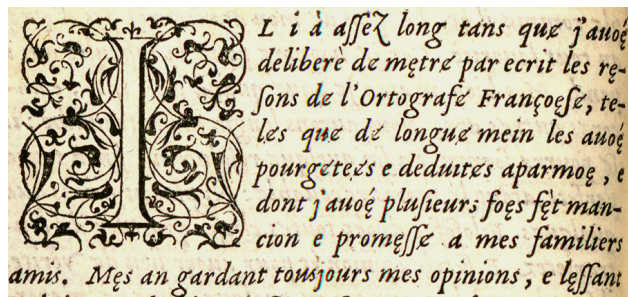 IL i à aſſez long tans quɇ j'auoę́
deliberè dɇ mętrɇ par ecrit les rę-
ſons dɇ l'Ortografɇ Françoęſɇ, te-
les quɇ dɇ longuɇ mein les auoę́
pourgeteɇs e deduitɇs aparmoę, e
dont j'auoę́ pluſieurs foęs fę̀t man-
cion e promęſſɇ a mes familiers
amis. Męs an gardant tousjours mes opinions, e lęſſant